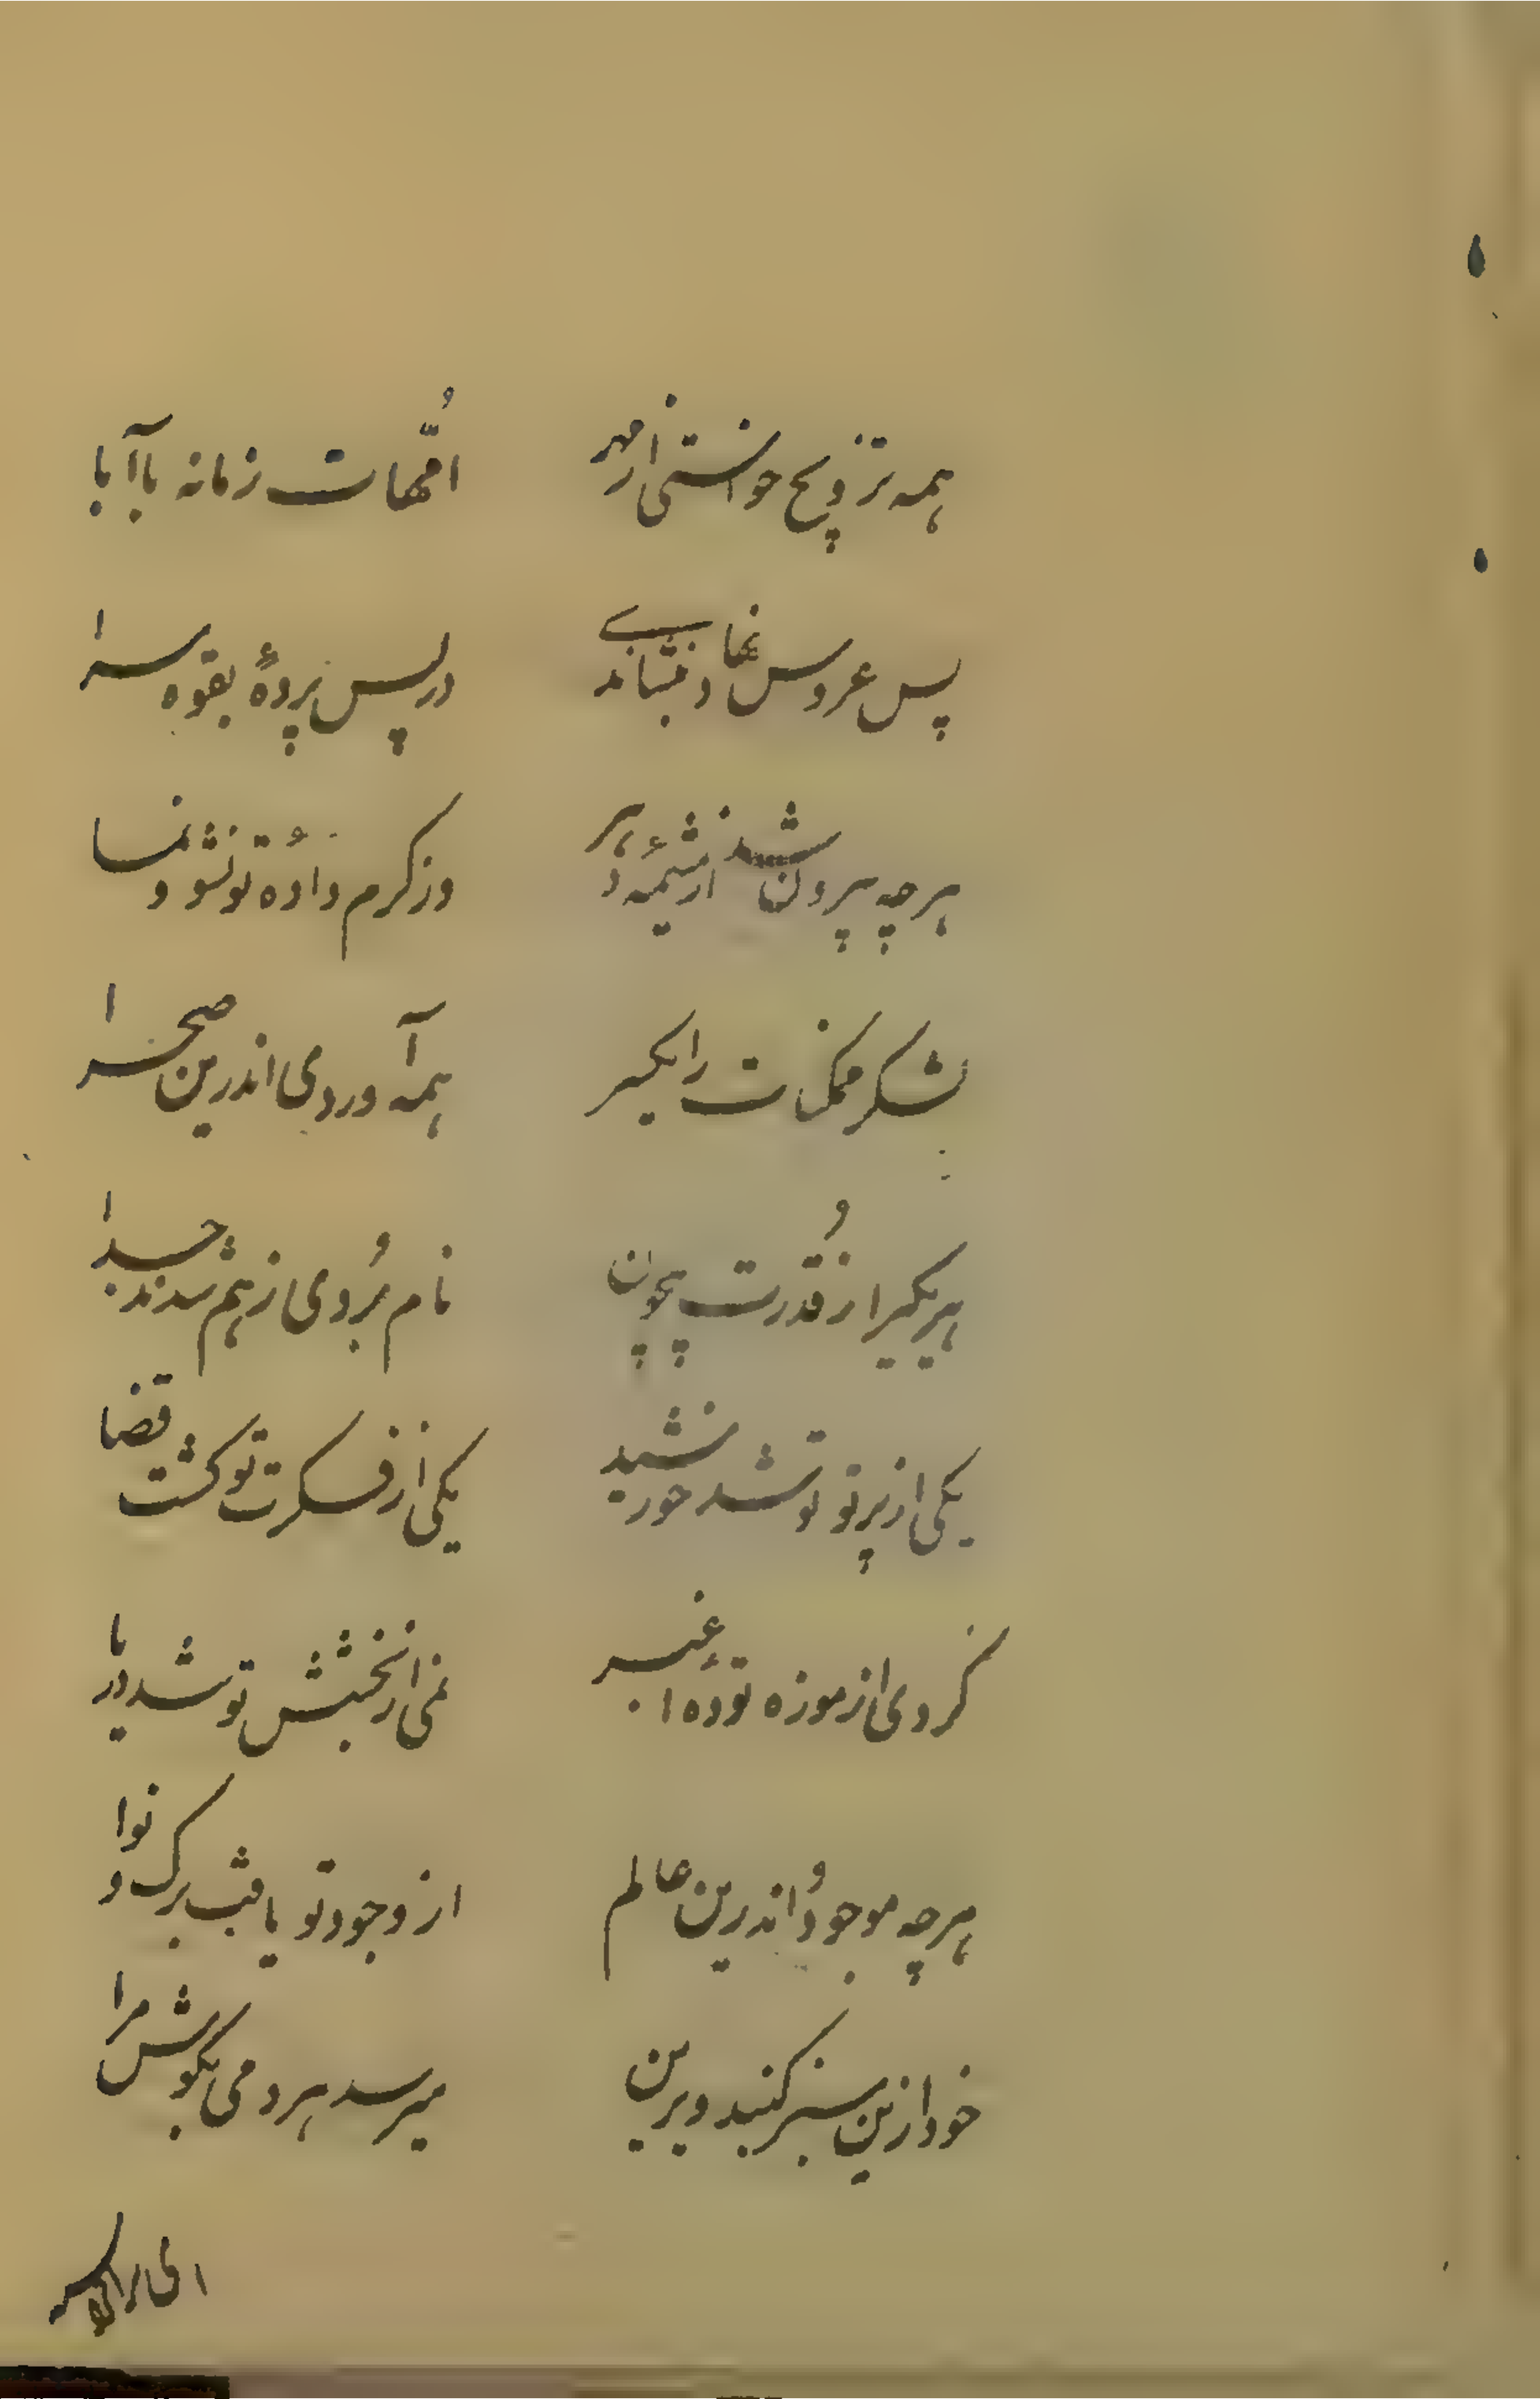 همه تزویج خواستی از مهر امّهات زمانه باآبا
پس عروس نما و بنشاند در پس پردهٔ بقوه سرا
هرچه بیرون شد از مشیمهٔ دهر وز کرم دادهٔ تو نشو و نما
لشکر ممکنات را یکسر همه آوردی اندرین صحرا
هر یکیرا ز قدرت بیچون نام بردی ز هم شدند جدا
یکی از پرتو تو شد خورشید یکی از فکرت تو گشت قضا
کردی از موزه تودهٔ اغبر نمی از بخشش تو شد دریا
هرچه موجود اندرین عالم از وجود تو یافت برک و نوا
خود ازین سبز کنبد ویرین میرسد هردمی بگوش مرا